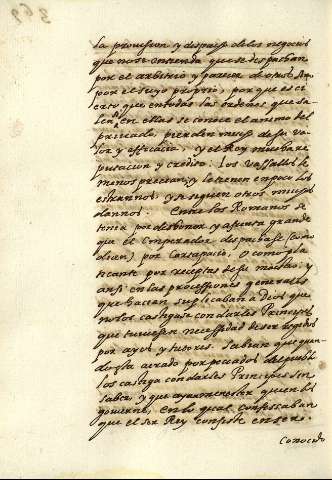 369
la provission y despacho de los negocios
que no se entienda que se despachan
por el arbitrio y parecer de otros sino
por el suyo proprio, porque es ci
erto que en todas las ordenes que sa
len, en ellas se conoce el animo del
privado pierden mucho de su va
lor y efficacia, y el Rey mucha re
putacion y credito. los vassallos le
menos precian, y le tienen en poco los
estraños, y se siguen otros muchos
daños. Entre los Romanos se
tenia por deshonor y afrenta grande
que el Emperador despachase (como
dician) por
por recetas de su y
ansi en las processiones generales
que hacian suplicaban a Dios que
no los castigase con darles Principes
que tuviesen necessidad de ser regidos
por ayos y tutores. Sabian que quan
do esta airado por peccados del pueblo
los castiga con darles Principes sin
saber, y que ayan menester quien los
govierne, en lo qual confessaban
que el ser Rey consiste en ser
Conocido